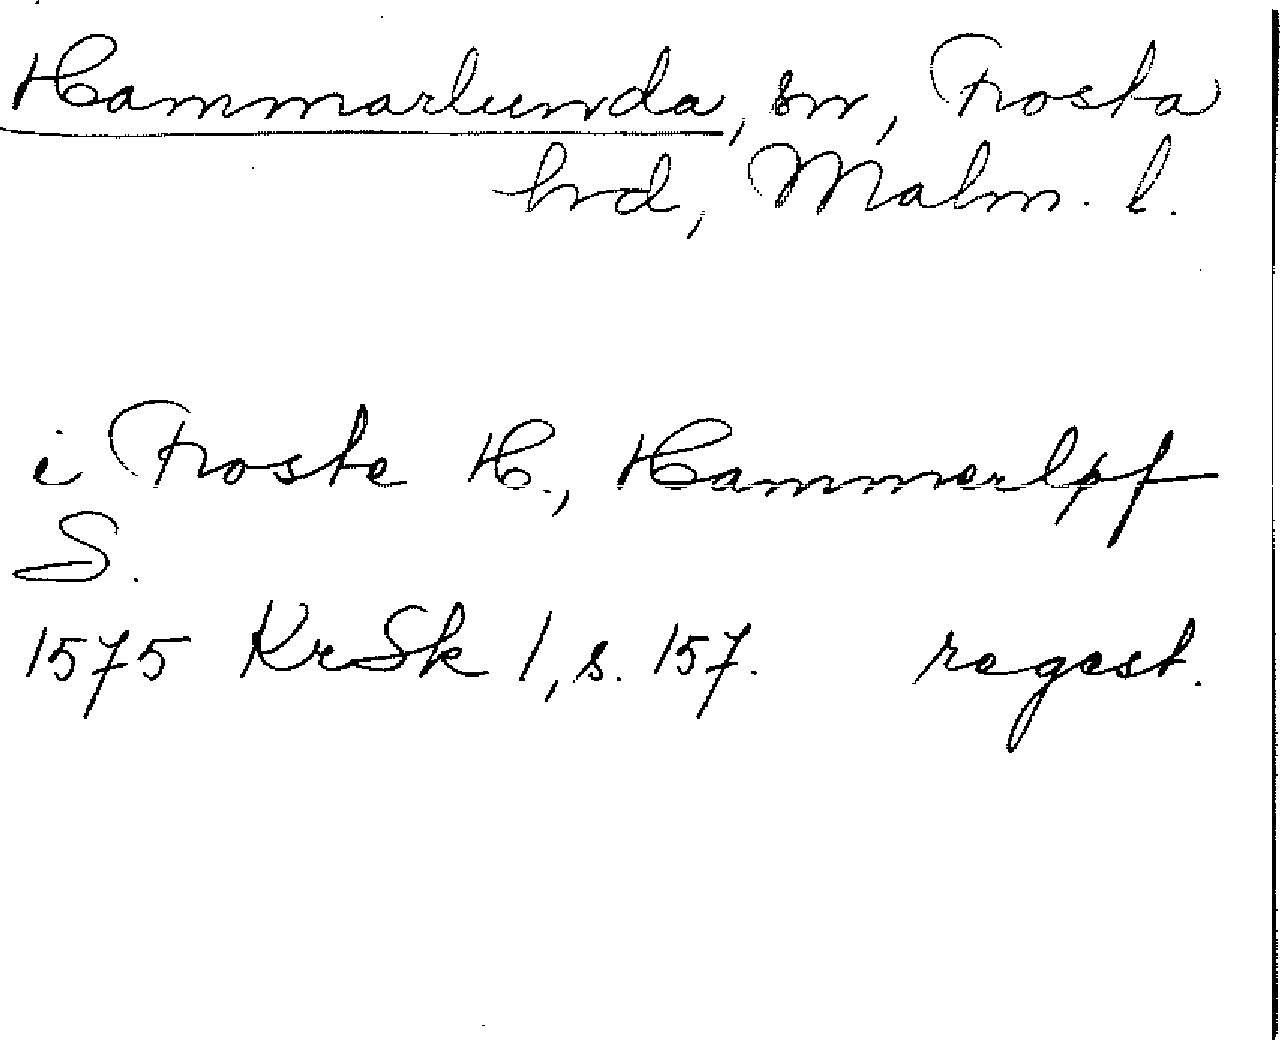 Hammarlunda, sn, Frosta
hrd, Malm. l.
i Froste H., Hammerløf
S.
1575 KrSk 1, s. 157. regest.